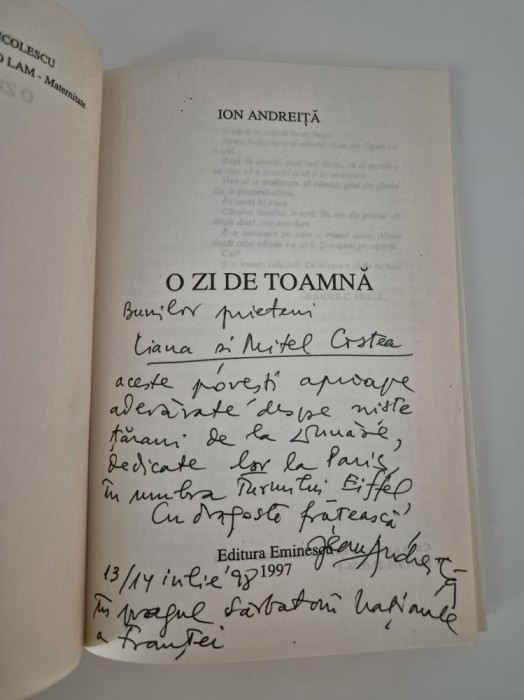 COLESCU
LAM - Maternitate
O ZI
ION ANDREIȚĂ
O ZI DE TOAMNĂ
Bunilor prieteni
Liana si Mitel Costea
aceste povești aproape
adevărate despre niste
țărani de la Dunăre,
dedicate lor la Paris,
în umbra Turnului Eiffel
Cu dragoste frățească
Editura Eminescu
1997
13/14 iulie '98
în pragul sărbătorii naționale
a Franței